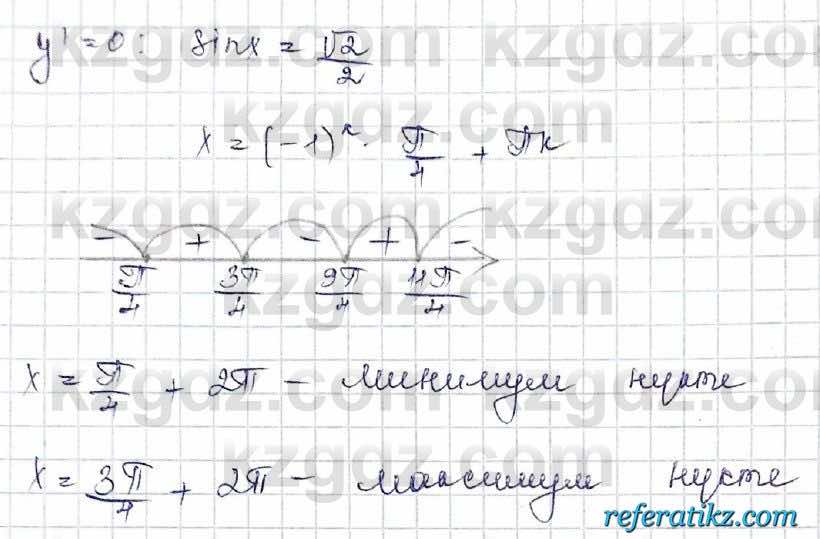 y' = 0 : sin x = √2/2
x = (-1)^k · π/4 + πk
- + - + -
π/4 3π/4 9π/4 11π/4
x = π/4 + 2π - минимум нүкте
x = 3π/4 + 2π - максимум нүкте
kzgdz.com
referatikz.com